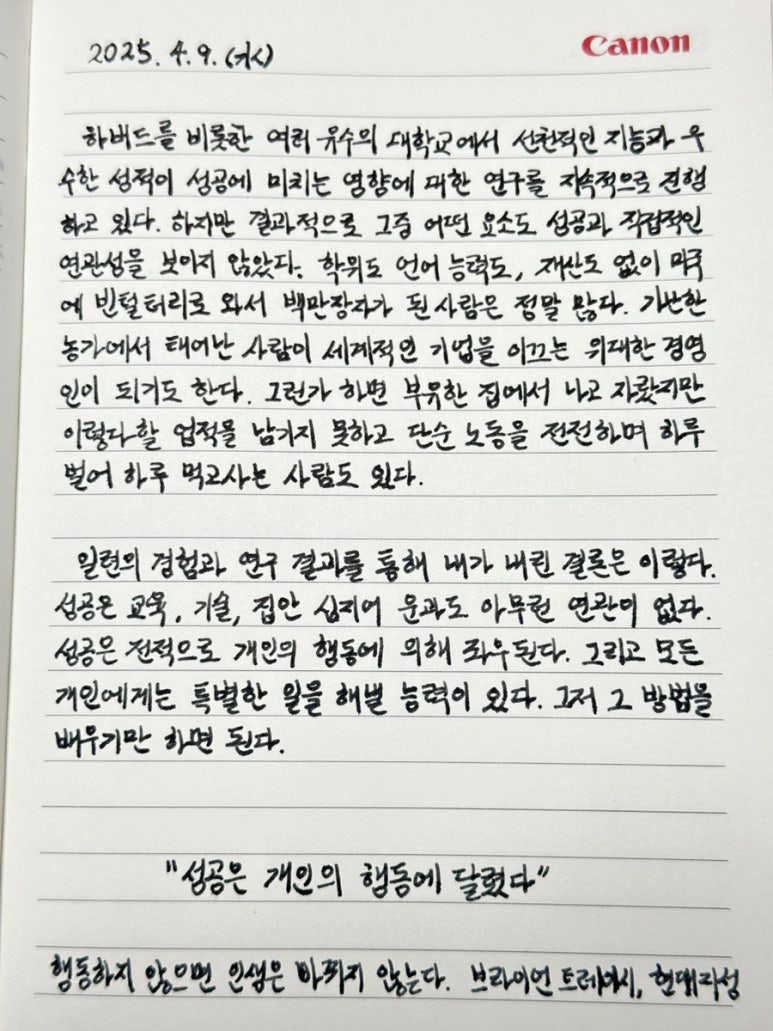 2025. 4. 9. (수)
Canon
하버드를 비롯한 여러 유수의 대학교에서 선천적인 지능과 우
수한 성적이 성공에 미치는 영향에 대한 연구를 지속적으로 진행
하고 있다. 하지만 결과적으로 그중 어떤 요소도 성공과 직접적인
연관성을 보이지 않았다. 학위도 언어 능력도, 재산도 없이 미국
에 빈털터리로 와서 백만장자가 된 사람은 정말 많다. 가난한
농가에서 태어난 사람이 세계적인 기업을 이끄는 위대한 경영
인이 되기도 한다. 그런가 하면 부유한 집에서 나고 자랐지만
이렇다 할 업적을 남기지 못하고 단순 노동을 전전하며 하루
벌어 하루 먹고사는 사람도 있다.
일련의 경험과 연구 결과를 통해 내가 내린 결론은 이렇다.
성공은 교육, 기술, 집안 심지어 운과도 아무런 연관이 없다.
성공은 전적으로 개인의 행동에 의해 좌우된다. 그리고 모든
개인에게는 특별한 일을 해낼 능력이 있다. 그저 그 방법을
배우기만 하면 된다.
"성공은 개인의 행동에 달렸다"
행동하지 않으면 인생은 바뀌지 않는다. 브라이언 트레이시, 현대지성